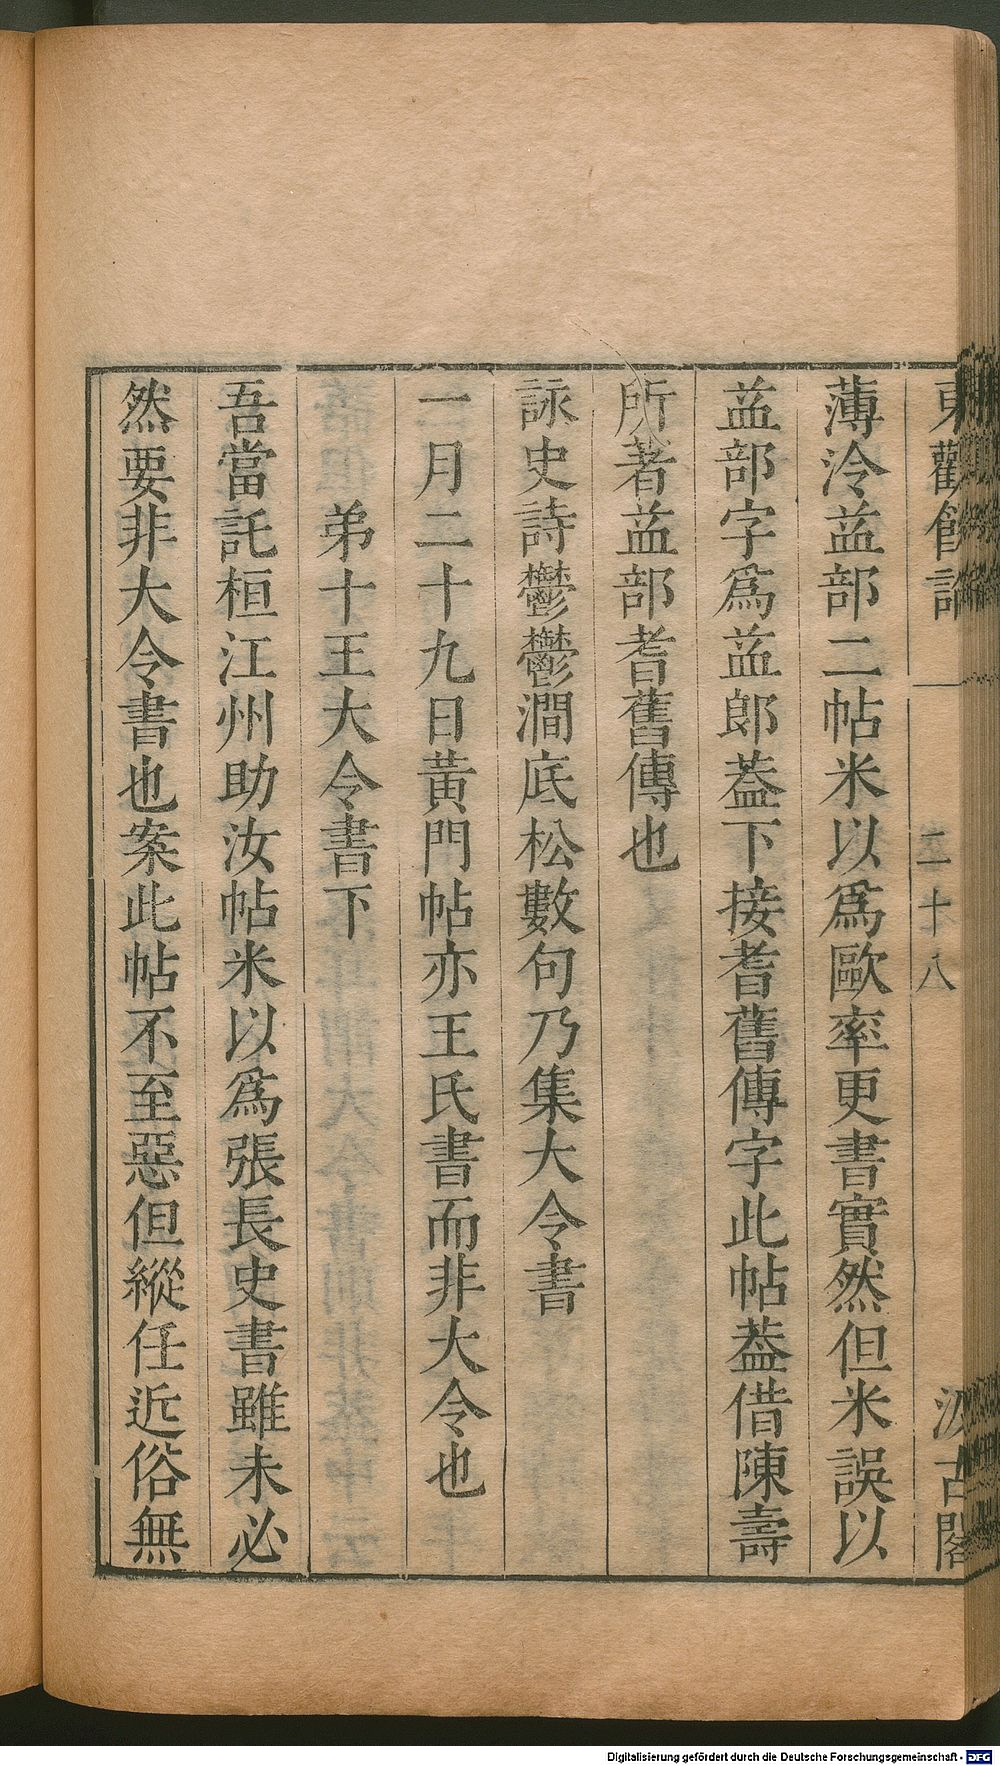 東觀餘論
二十八
汲古閣
薄泠益部二帖米以爲歐率更書實然但米誤以
益部字爲益郎葢下接耆舊傳字此帖葢借陳壽
所著益部耆舊傳也
詠史詩鬱鬱澗底松數句乃集大令書
一月二十九日黃門帖亦王氏書而非大令也
弟十王大令書下
吾當託桓江州助汝帖米以爲張長史書雖未必
然要非大令書也案此帖不至惡但縱任近俗無
Digitalisierung gefördert durch die Deutsche Forschungsgemeinschaft - DFG